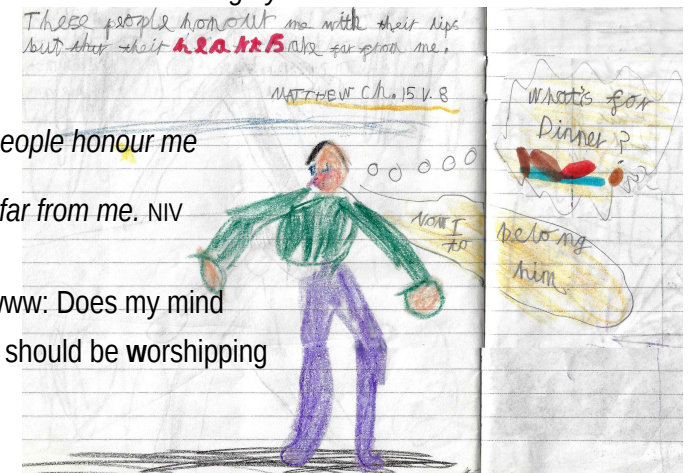 These people honour me with their lips
but their hearts are far from me.
MATTHEW Ch. 15 V. 8
eople honour me
far from me. NIV
www: Does my mind
should be worshipping
What's for
Dinner?
Now I belong
to him